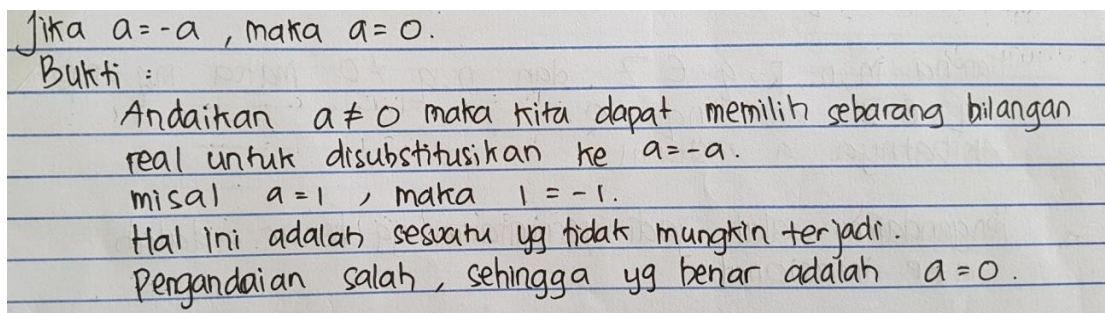 Jika a = -a , maka a = 0.
Bukti :
Andaikan a ≠ 0 maka kita dapat memilih sebarang bilangan
real untuk disubstitusikan ke a = -a.
misal a = 1 , maka 1 = -1.
Hal ini adalah sesuatu yg tidak mungkin terjadi.
Pengandaian salah , sehingga yg benar adalah a = 0 .